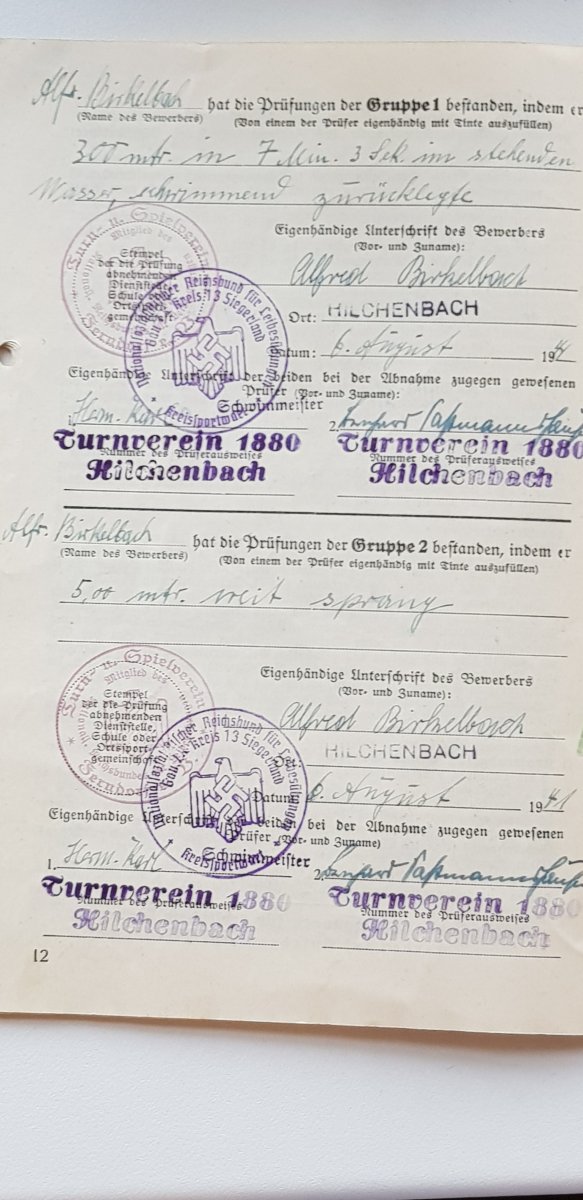 Alfr. Birkelbach hat die Prüfungen der Gruppe 1 bestanden, indem er
(Name des Bewerbers) (Von einem der Prüfer eigenhändig mit Tinte auszufüllen)
300 mtr. in 7 Min. 3 Sek. im stehenden
Wasser, schwimmend zurücklegte
Turn- u. Spielverein
Mitglied des
Eigenhändige Unterschrift des Bewerbers
(Vor- und Zuname):
Stempel
der die Prüfung
abnehmenden
Dienststelle,
Schule oder
Ortssport-
gemeinschaft
Nationalsozialistischer Reichsbund für Leibesübungen
Kreis: 13 Siegerland
Kreissportwart
Alfred Birkelbach
Ort: HILCHENBACH
Datum: 6. August 1941
Eigenhändige Unterschrift der beiden bei der Abnahme zugegen gewesenen
Prüfer (Vor- und Zuname):
Schwimmeister
1. Herm. Karl 2.
Turnverein 1880 Turnverein 1880
Nummer des Prüferausweises Nummer des Prüferausweises
Hilchenbach Hilchenbach
Alfr. Birkelbach hat die Prüfungen der Gruppe 2 bestanden, indem er
(Name des Bewerbers) (Von einem der Prüfer eigenhändig mit Tinte auszufüllen)
5,00 mtr. weit sprang
Turn- u. Spielverein
Mitglied des
Eigenhändige Unterschrift des Bewerbers
(Vor- und Zuname):
Stempel
der die Prüfung
abnehmenden
Dienststelle,
Schule oder
Ortssport-
gemeinschaft
Nationalsozialistischer Reichsbund für Leibesübungen
Kreis 13 Siegerland
Kreissportwart
Alfred Birkelbach
Ort HILCHENBACH
Datum 6. August 1941
Eigenhändige Unterschrift der beiden bei der Abnahme zugegen gewesenen
Prüfer (Vor- und Zuname)
Schwimmeister
1. Herm. Karl 2.
Turnverein 1880 Turnverein 1880
Nummer des Prüferausweises Nummer des Prüferausweises
Hilchenbach Hilchenbach
12